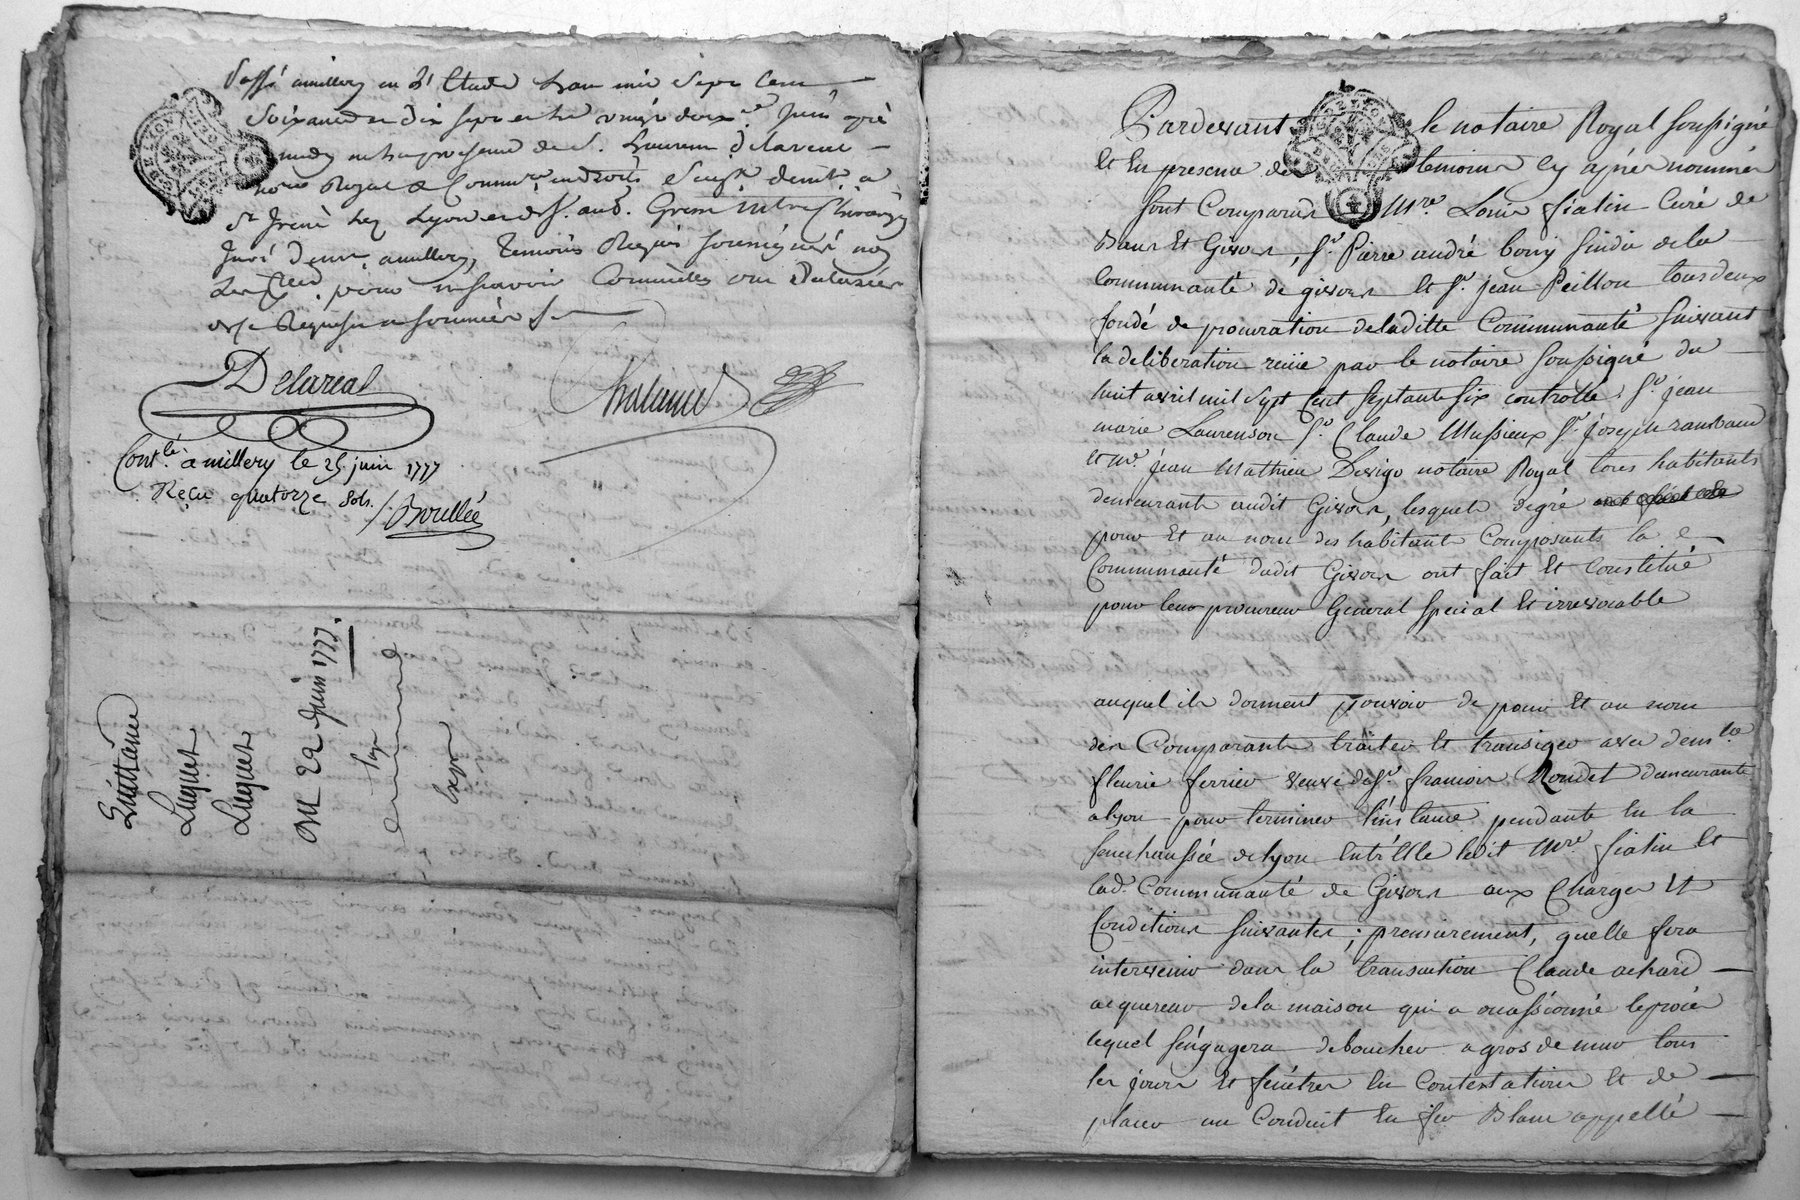 Passé a millery en l'Etude L'an mil Sept Cent
Soixante et dix sept et le vingt deux juin après
midy en la presence de S. Laurent Delareal
no.re Royal & Comm.re
St Irené Lez Lyon et de S. ant.
juré dem.t a millery, Temoins Requis soussignés non
pour ne sçavoir
de ce Requis et sommés
Delareal
Chalamel
Cont.lé a millery le 25 juin 1777
Reçu quatorze sols. Boullée
Quittance
Luquet
Luquet
Du 22 Juin 1777.
Exp
Pardevant le notaire Royal soussigné
Et En presence des temoins cy après nommés
sont Comparus M.re Louis fiatin Curé de
Bans Et Givors, S.r Pierre andré bory sindic de la
Communauté de givors Et S.r jean Peillon tous deux
fondé de procuration de laditte Communauté suivant
la deliberation reçüe par le notaire soussigné du
huit avril mil sept cent septante six controllé, S.r jean
marie Laurenson S.r Claude Mussieux S.r joseph rambaud
et M.e jean Mathieu Desigo notaire Royal tous habitants
demeurants audit Givors, lesquels de gré
pour Et au nom des habitants Composants la
Communauté dudit Givors ont fait Et Constitué
pour leur procureur General special Et irrevocable
auquel ils donnent pouvoir de pour Et au nom
des Comparants traiter Et transiger avec dem.lle
fleurie ferrier veuve du S.r francois Rondet demeurante
a lyon pour terminer l'instance pendante En la
senechaussée de lyon Entr'Elle ledit M.re fiatin Et
lad. Communauté de Givors aux Charges Et
Conditions suivantes; premierement, quelle fera
intervenir dans la transaction Claude achard
acquereur de la maison qui a ocassionné le procès
lequel s'engagera de boucher a gros de mur tous
les jours Et fenêtres En Contestations Et de
placer un Conduit En fer Blanc appellé